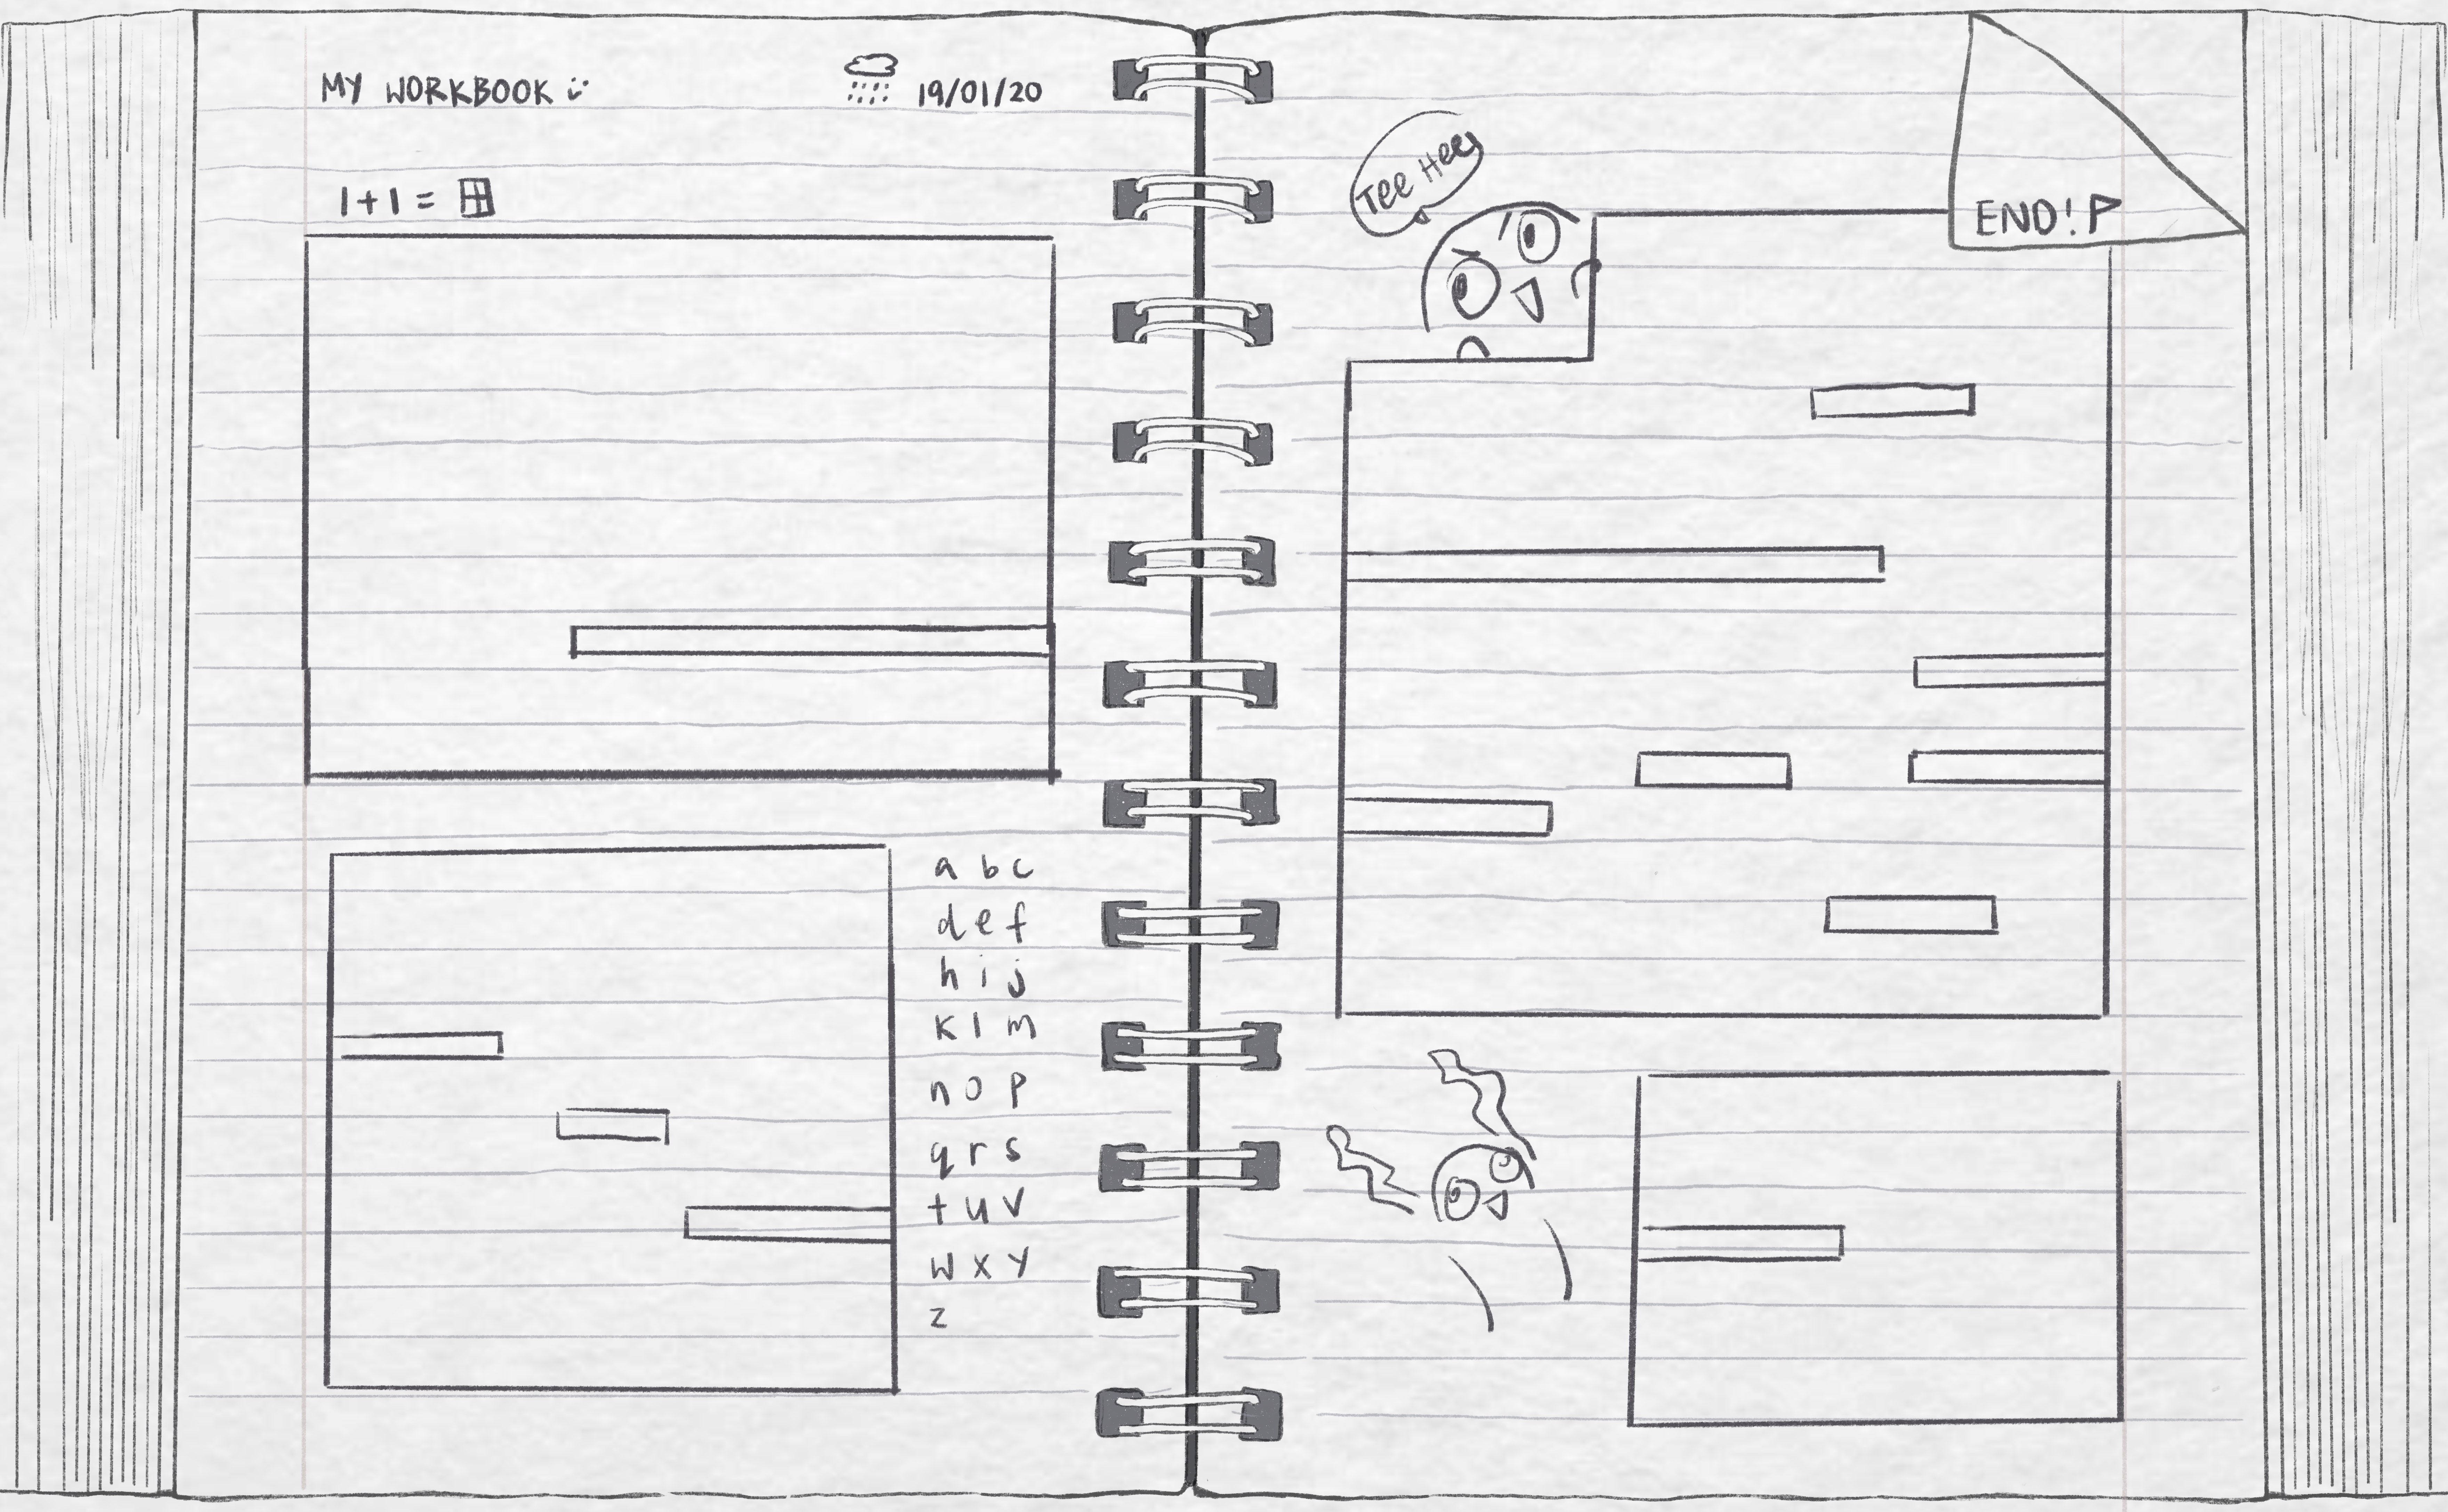 MY WORKBOOK :)
19/01/20
1+1 = 田
a b c
d e f
h i j
k l m
n o p
q r s
t u v
w x y
z
Tee Hee
END!